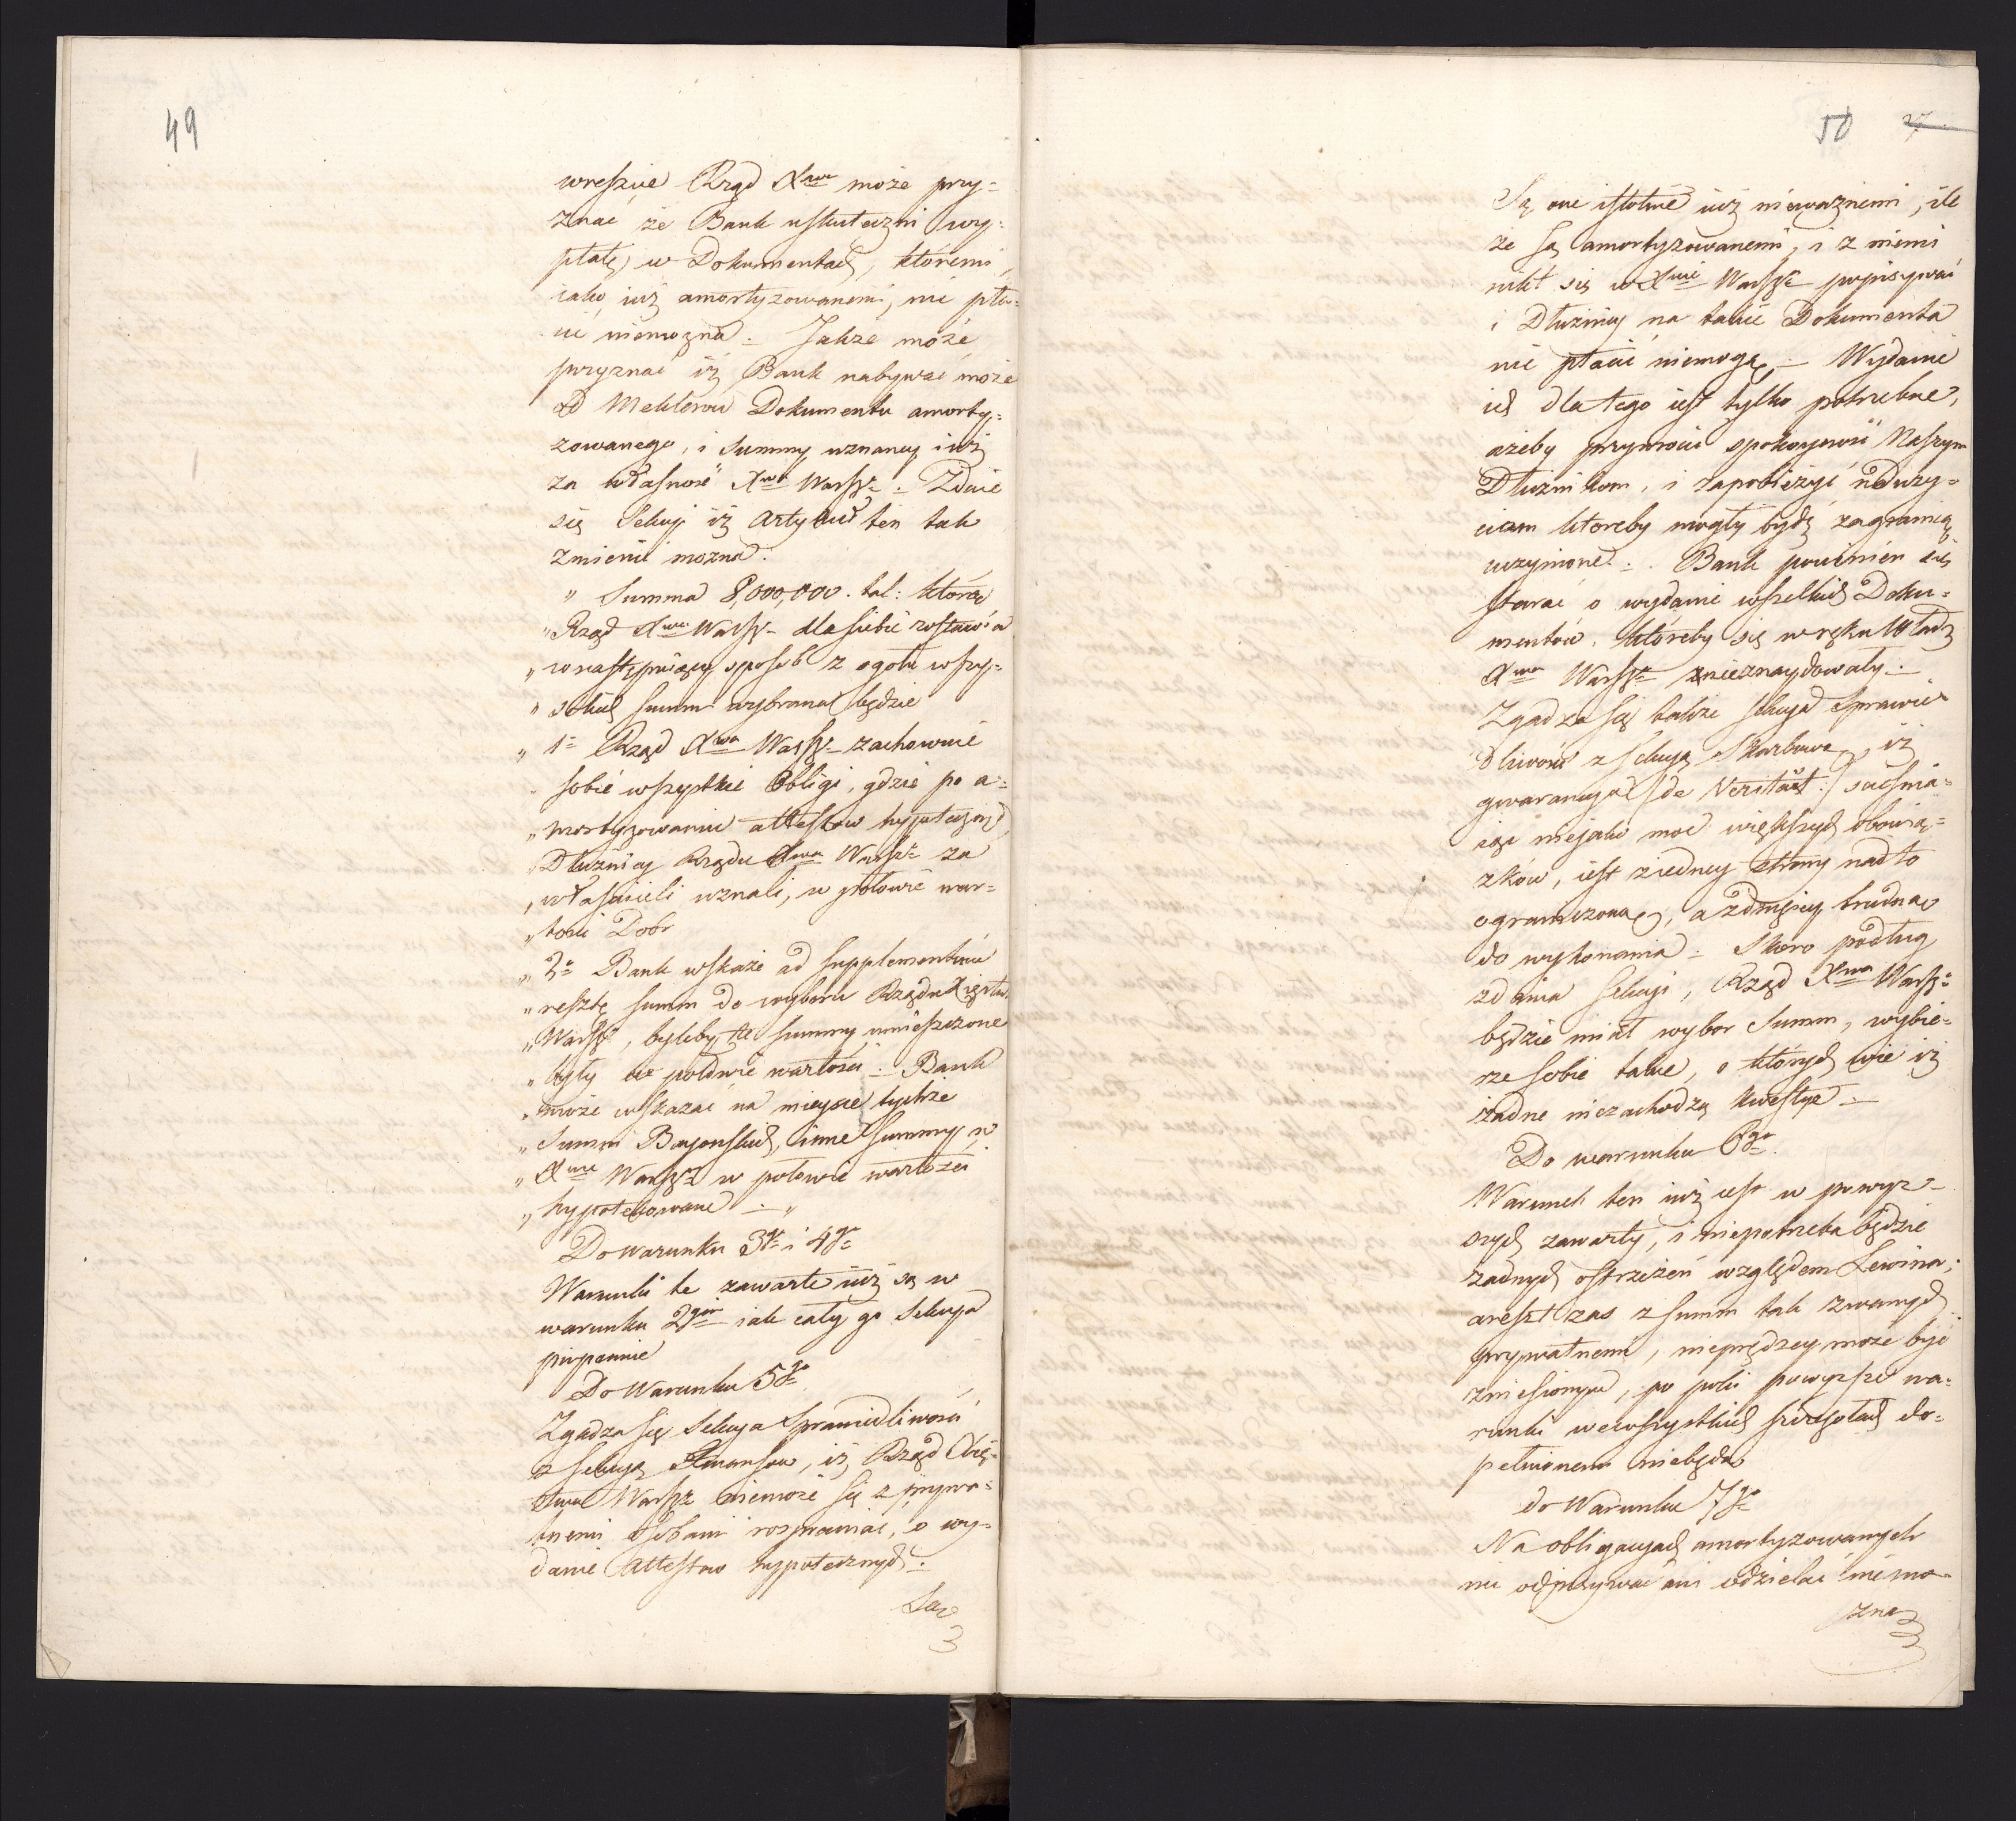 49
wreszcie Rząd Xwa może przy=
znać że Bank uskuteczni wy=
płatę w Dokumentach, któremi,
iako iuż amortyzowanemi, nic pła=
cić niemożna. Jakże może
przyznać iż Bank nabywać może
od Meklerów Dokumentu amorty=
zowanego, i Summy uznaney iuż
za własność Xwa Warsz: Zdaie
się Sekcyi iż artykuł ten tak
zmienić można.
„ Summa 8,000,000. tal: którą
„ Rząd Xwa Warsz- dla siebie zostawia
„ w następuiący sposób z ogółu wszy=
„ stkich summ wybrana będzie
„ 1o Rząd Xwa Warsz- zachowuie
„ sobie wszystkie Obligi, gdzie po a=
„ mortyzowaniu attestów hypotecznych
„ Dłużnicy Rządu Xwa Warsz- za
„ właścicieli uznali, w połowie war=
„ tości Dobr
„ 2o Bank wskaże ad supplementum
„ resztę summ do wyboru Rządu Xięstwa
„ Warsz, byleby te summy umieszczone
„ były w połowie wartości. Bank
„ może wskazać na mieysce tychże
„ Summ Bayonskich, inne summy w
„ Xwie Warsz: w połowie wartości
„ hypotekowane. „
Do warunku 3go i 4go
Warunki te zawarte iuż są w
warunku 2gim iak cały go Sekcya
proponuie
Do Warunku 5go
Zgadza się Sekcya Sprawiedliwości
z Sekcyą Finansów, iż Rząd Xię=
stwa Warsz niemoże się z prywa=
tnemi osobami rosprawiać, o wy=
danie Attestow hypotecznych.
Są
50 27
Są one istotnie iuż nieważnemi, ile
że są amortyzowanemi, i z niemi
nikt się w Xwie Warsz: popisywać
i Dłużnicy na takie Dokumenta
nic płacić niemogą. Wydanie
ich dla tego iest tylko potrzebne,
ażeby przynieść spokoyność Naszym
Dłużnikom, i zapobieżyć naduży=
ciom któreby mogły bydź zagranicą
uczynione. Bank powinien się
starać o wydanie wszelkich Doku=
mentów, któreby się w ręku Władz
Xwa Warsza nieznaydowały.
Zgadza się także Sekcya Sprawie=
dliwości z Sekcyą Skarbową, iż
gwarancya (de Veritate) sciesnia=
iąc nieiako moc większych obowią=
zków, iest z iedney strony nadto
ograniczona, a z drugiey trudna
do wykonania. Skoro podług
zdania Sekcyi, Rząd Xwa Warsz:
będzie miał wybor Summ, wybie=
rze sobie takie, o których wie iż
żadne niezachodzą kwestye.
Do warunku 6go
Warunek ten iuż iest w powyż=
szych zawarty, i niepotrzeba będzie
żadnych ostrzeżeń względem Lewina;
areszt zas z summ tak zwanych
prywatnemi, nieprędzey może być
zniesionym, po poki powyższe wa=
runki we wszystkich szczegółach do=
pełnionemi niebędą
do Warunku 7go
Na obligacyach amortyzowanych
nic odpisywać ani udzielać niemo=
żna